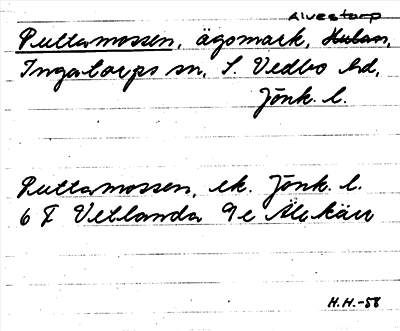 Alvestorp
Puttamossen, ägomark, Hulan,
Ingatorps sn, S. Vedbo hd,
Jönk. l.
Puttamossen, ek. Jönk. l.
6 F Vetlanda 9e Älekärr
H.H.-58